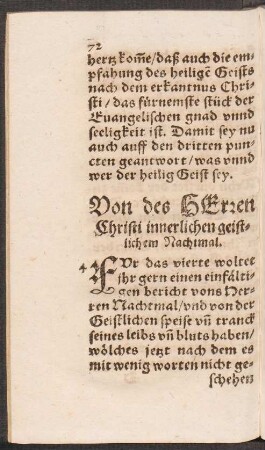 72
hertz kom̃e/daß auch die em-
pfahung des heiligẽ Geists
nach dem erkantnus Chri-
sti/das fürnemste stück der
Euangelischen gnad vnnd
seeligkeit ist. Damit sey nu
auch auff den dritten pun-
cten geantwort/was vnnd
wer der heilig Geist sey.
Von des HErren
Christi innerlichen geist-
lichem Nachtmal.
4 FVr das vierte woltet
jhr gern einen einfälti-
gen bericht vons Her-
ren Nachtmal/vnd von der
Geistlichen speise vñ tranck
seines leibs vñ bluts haben/
wölches jetzt nach dem es
mit wenig worten nicht ge-
schehen